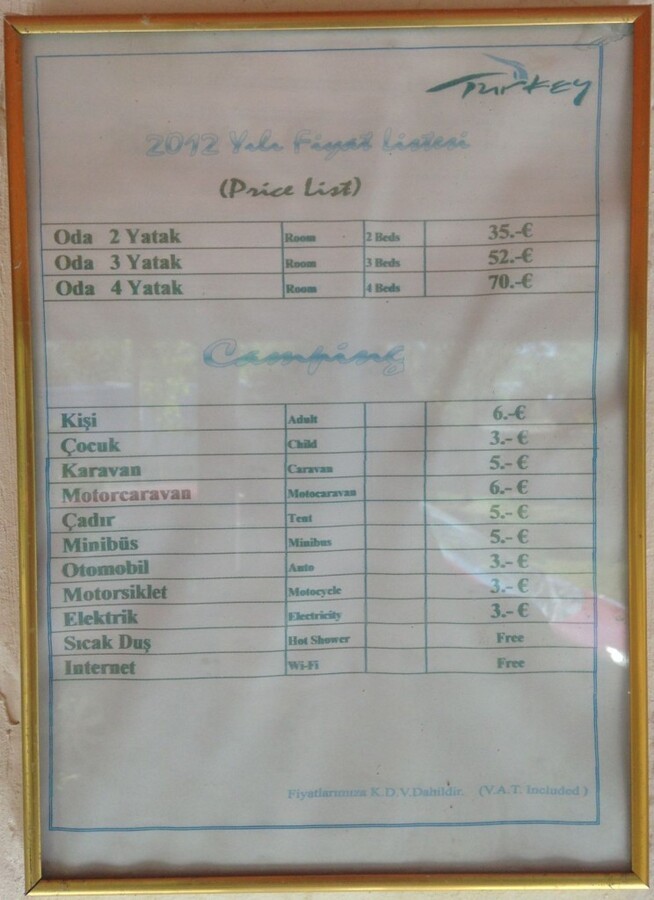 Turkey
2012 Yılı Fiyat Listesi
(Price List)
Oda 2 Yatak Room 2 Beds 35.-€
Oda 3 Yatak Room 3 Beds 52.-€
Oda 4 Yatak Room 4 Beds 70.-€
Camping
Kişi Adult 6.-€
Çocuk Child 3.- €
Karavan Caravan 5.- €
Motorcaravan Motocaravan 6.- €
Çadır Tent 5.- €
Minibüs Minibus 5.- €
Otomobil Auto 3.- €
Motorsiklet Motocycle 3.- €
Elektrik Electricity 3.- €
Sıcak Duş Hot Shower Free
Internet Wi-Fi Free
Fiyatlarımıza K.D.V.Dahildir. (V.A.T. Included )